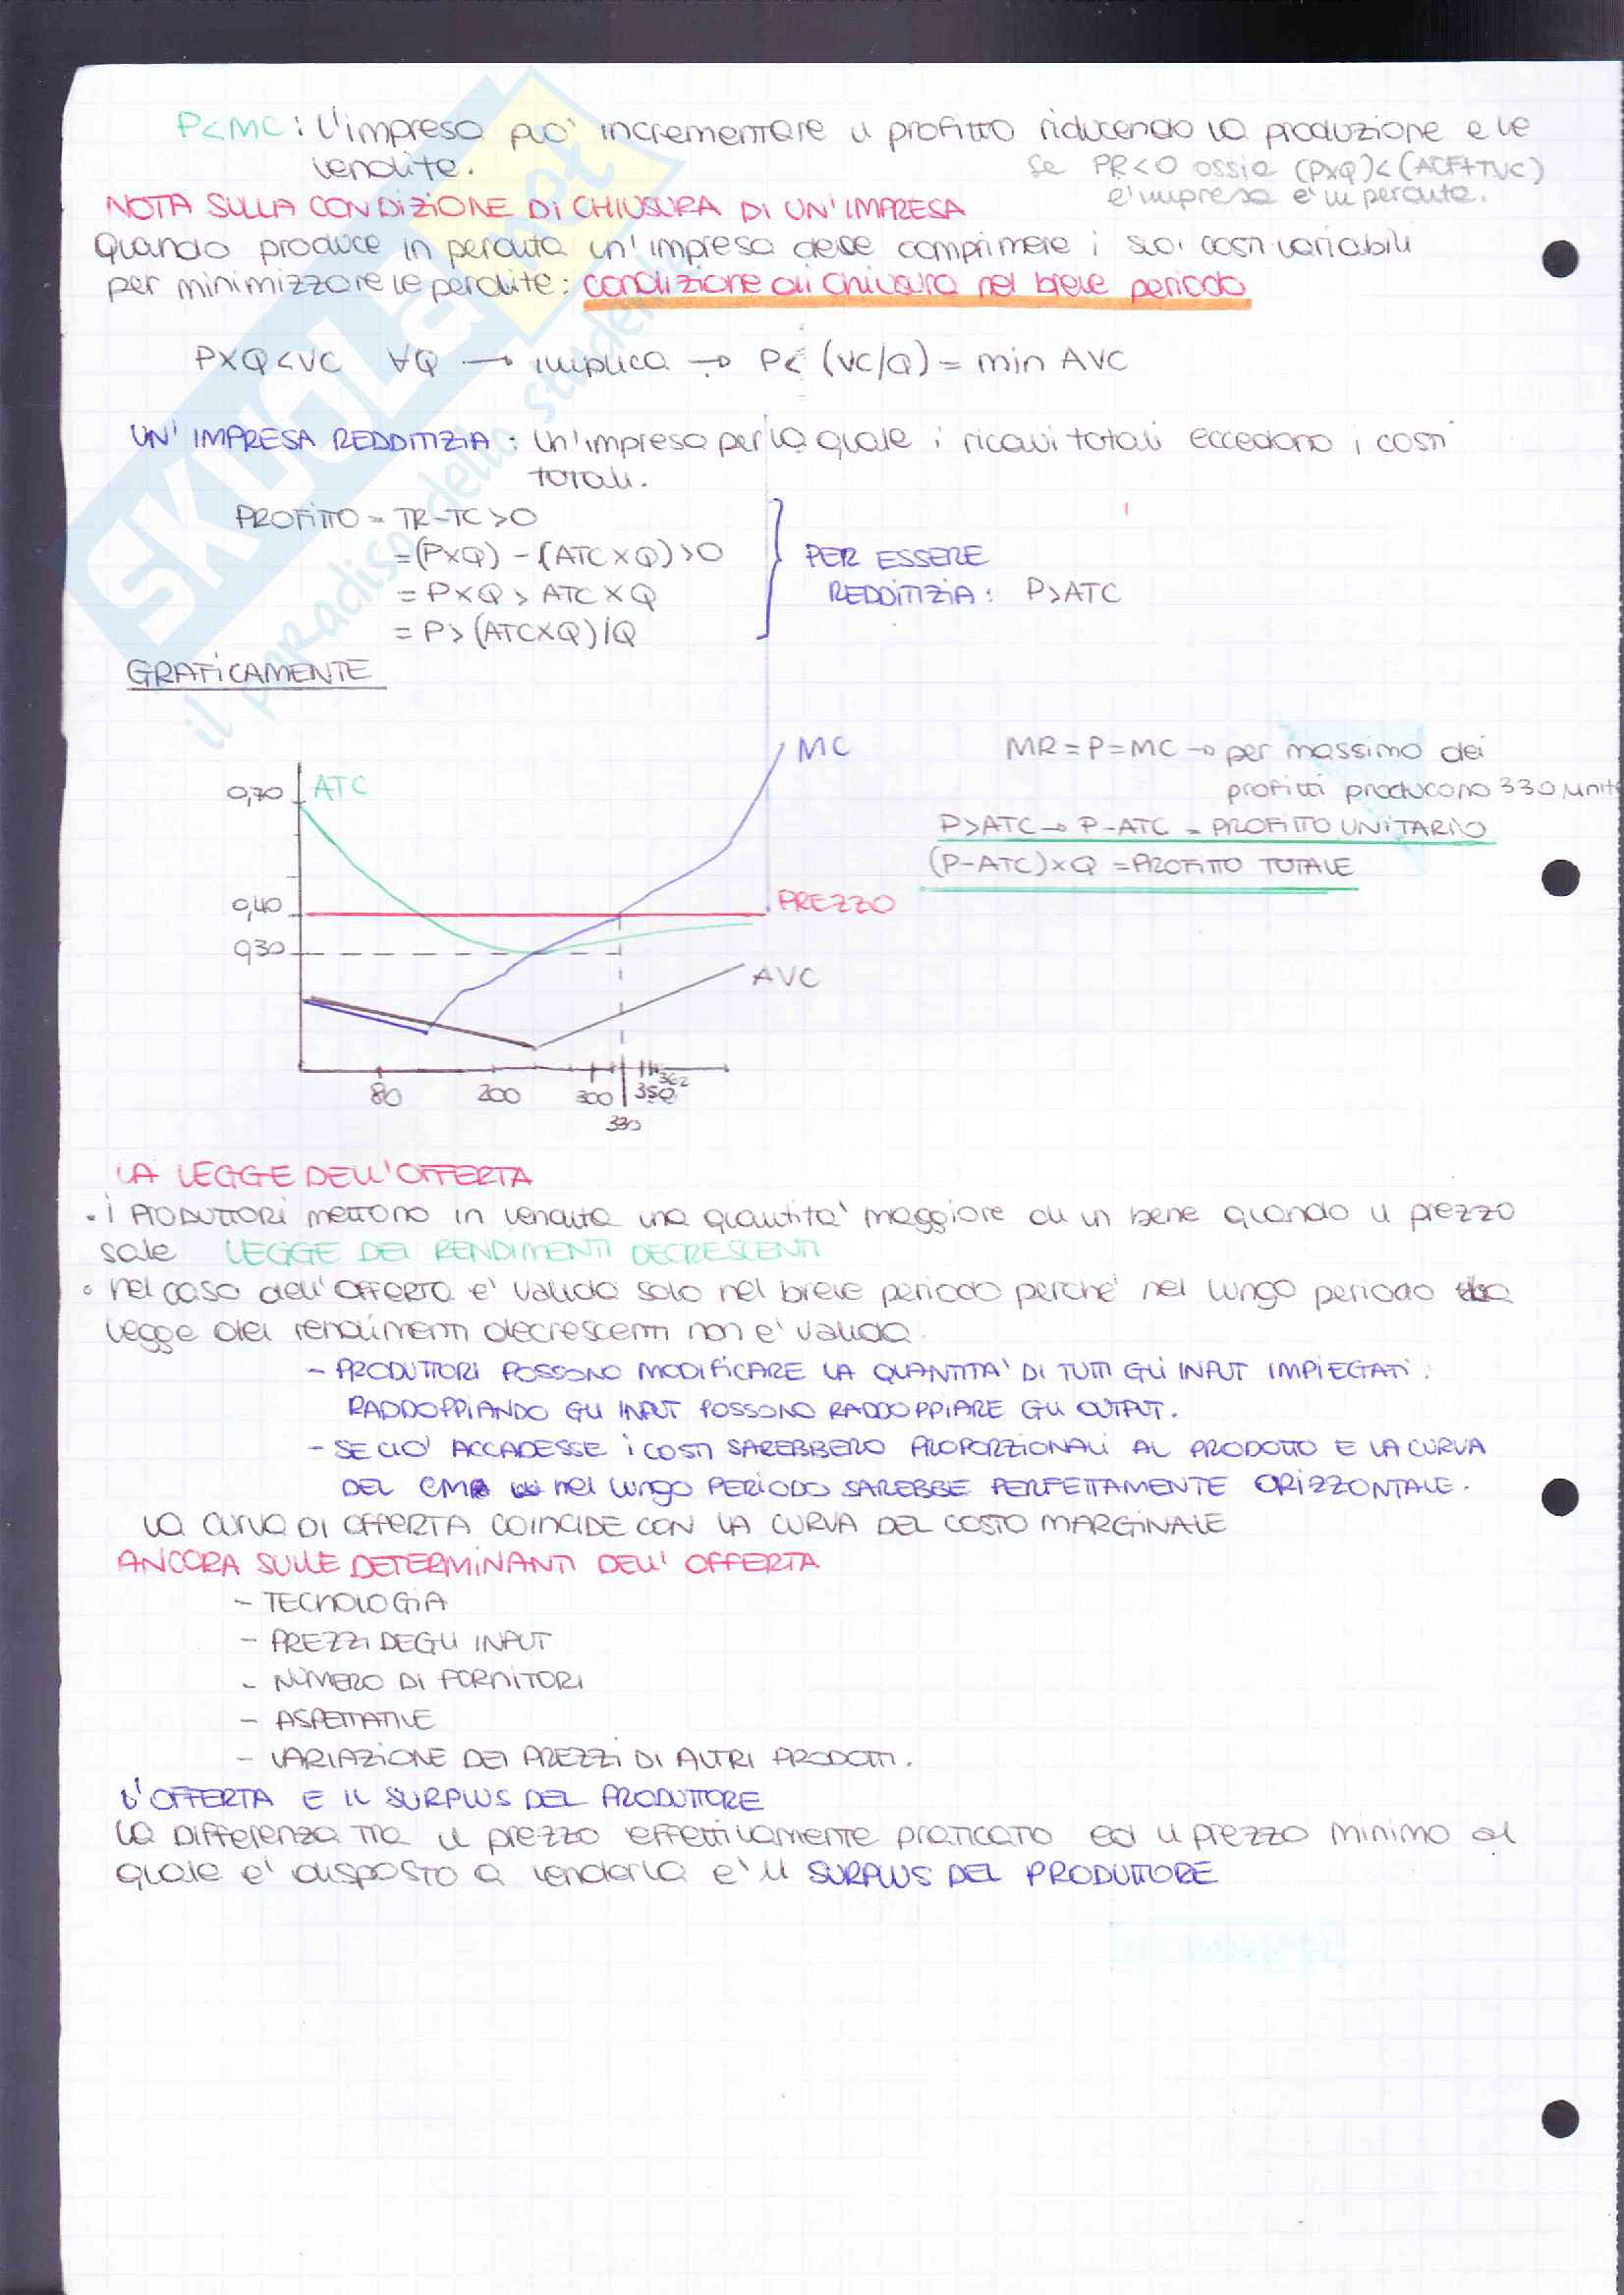 P<MC: L'impresa puo' incrementare il profitto riducendo la produzione e le
vendite.
se PR<0 ossia (PxQ)<(ACF+TVC)
l'impresa e' in perdita.
NOTA SULLA CONDIZIONE DI CHIUSURA DI UN'IMPRESA
Quando produce in perdita un'impresa deve comprimere i suoi costi variabili
per minimizzare le perdite: condizione di chiusura nel breve periodo
PXQ<VC ∀Q → implica → P< (VC/Q) = min AVC
UN'IMPRESA REDDITIZIA: Un'impresa per la quale i ricavi totali eccedono i costi
totali.
PROFITTO = TR-TC>0
=(PXQ) - (ATC X Q)>0
= PXQ > ATC X Q
= P> (ATCXQ)/Q
PER ESSERE
REDDITIZIA: P>ATC
GRAFICAMENTE
MC
MR = P = MC → per massimo dei
profitti producono 330 unità
P>ATC → P-ATC = PROFITTO UNITARIO
(P-ATC)xQ = PROFITTO TOTALE
0,70
ATC
0,40
PREZZO
0,30
AVC
80
200
300
350
362
330
LA LEGGE DELL'OFFERTA
• I PRODUTTORI mettono in vendita una quantita' maggiore di un bene quando il prezzo
sale LEGGE DEI RENDIMENTI DECRESCENTI
• nel caso dell'OFFERTA e' valida solo nel breve periodo perche' nel lungo periodo la
legge dei rendimenti decrescenti non e' valida.
- PRODUTTORI POSSONO MODIFICARE LA QUANTITA' DI TUTTI GLI INPUT IMPIEGATI:
RADDOPPIANDO GLI INPUT POSSONO RADDOPPIARE GLI OUTPUT.
- SE CIO' ACCADESSE I COSTI SAREBBERO PROPORZIONALI AL PRODOTTO E LA CURVA
DEL CM nel lungo PERIODO SAREBBE PERFETTAMENTE ORIZZONTALE.
LA CURVA DI OFFERTA COINCIDE CON LA CURVA DEL COSTO MARGINALE
ANCORA SULLE DETERMINANTI DELL'OFFERTA
- TECNOLOGIA
- PREZZI DEGLI INPUT
- NUMERO DI FORNITORI
- ASPETTATIVE
- VARIAZIONE DEI PREZZI DI ALTRI PRODOTTI.
L'OFFERTA E IL SURPLUS DEL PRODUTTORE
La Differenza tra il prezzo effettivamente praticato ed il prezzo minimo al
quale e' disposto a venderla e' il SURPLUS DEL PRODUTTORE
SKUOLA.net
il paradiso dello studente